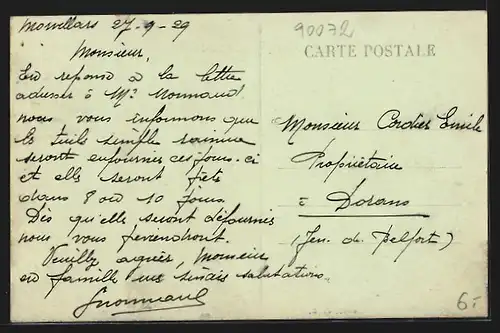 Morvillars 27-9-29
90072
CARTE POSTALE
Monsieur,
En reponse a la lettre
adresser à Mr Monnaud
nous vous informons que
les tuils simple rainure
seront enfournes ces jours-ci
et elle seront prête
dans 8 ou 10 jours.
Dès qu'elle seront défournies
nous vous préviendront.
Veuillez agréer, Monsieur
en famille nos sincères salutations.
Monsieur Cordier Emile
Propriétaire
à Dorans
(Ter. de Belfort)
6.-